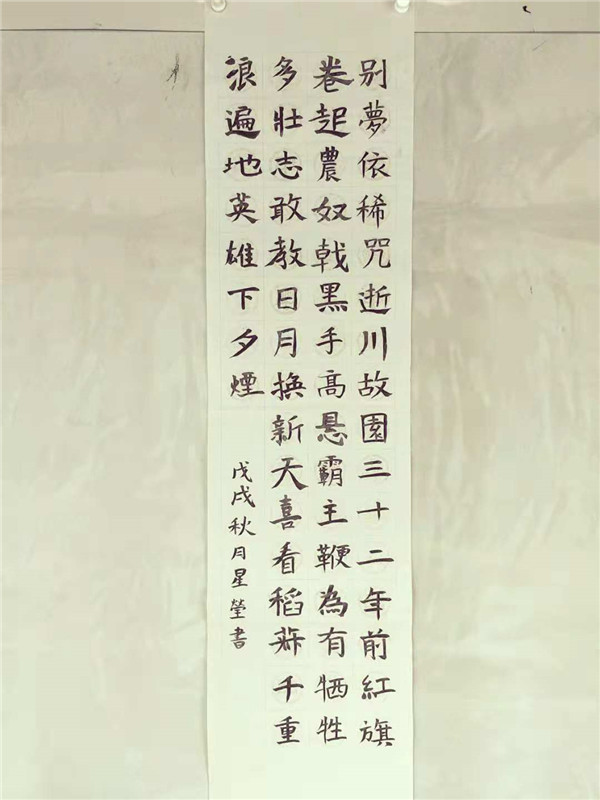 别夢依稀咒逝川故園三十二年前紅旗
卷起農奴戟黑手高悬霸主鞭為有牺牲
多壯志敢教日月換新天喜看稻菽千重
浪遍地英雄下夕煙
戊戌秋月星瑩書